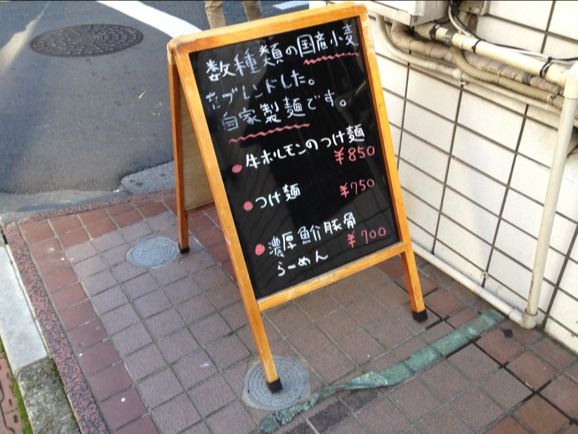 数種類の国産小麦
をブレンドした。
自家製麺です。
●牛ホルモンのつけ麺
¥850
●つけ麺 ¥750
●濃厚魚介豚骨
らーめん ¥700